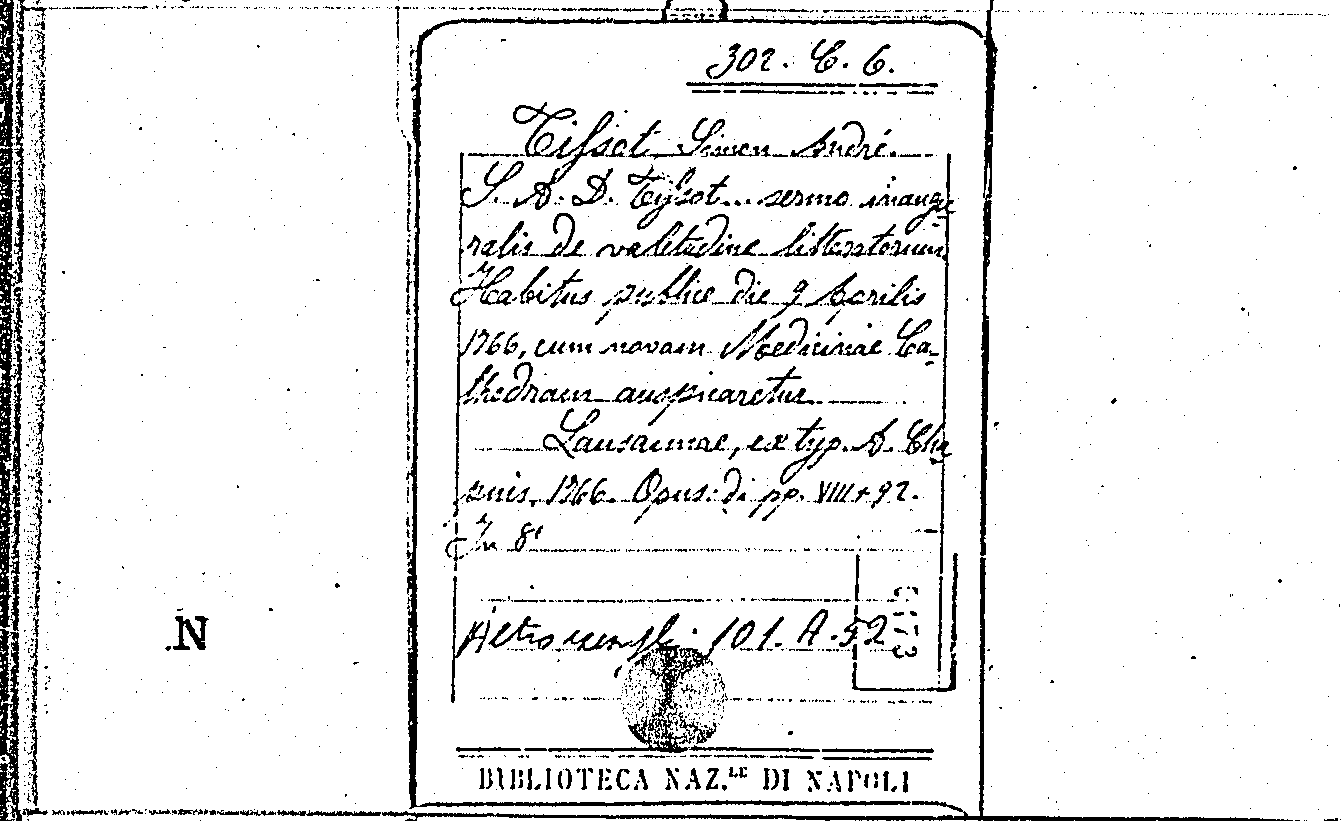 302. C. 6.
Tissot Simon André.
S. A. D. Tissot... sermo inaugu-
ralis de valitudine litteratorum
Habitus publice die 9 Aprilis
1766, cum novam Medicinae Ca-
thedram auspicaretur
Lausannae, ex typ. A. Cha-
puis, 1766. Opus: di pp. VIII+92.
In 8°
Altro esempl: 101. A. 52
N
BIBLIOTECA NAZ.LE DI NAPOLI